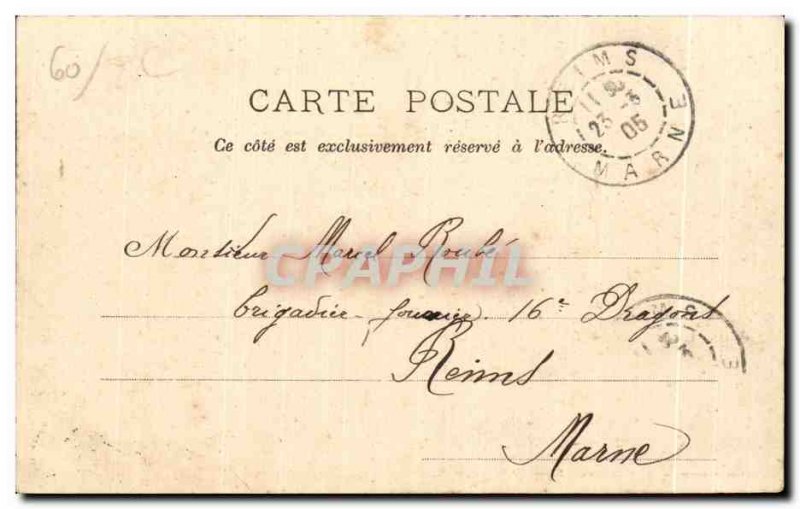 60/
REIMS
MARNE
23
05
CARTE POSTALE
Ce côté est exclusivement réservé à l'adresse.
Monsieur Marcel Roubé
CPAPHIL
brigadier fourrier 16e Dragons
Reims
Marne